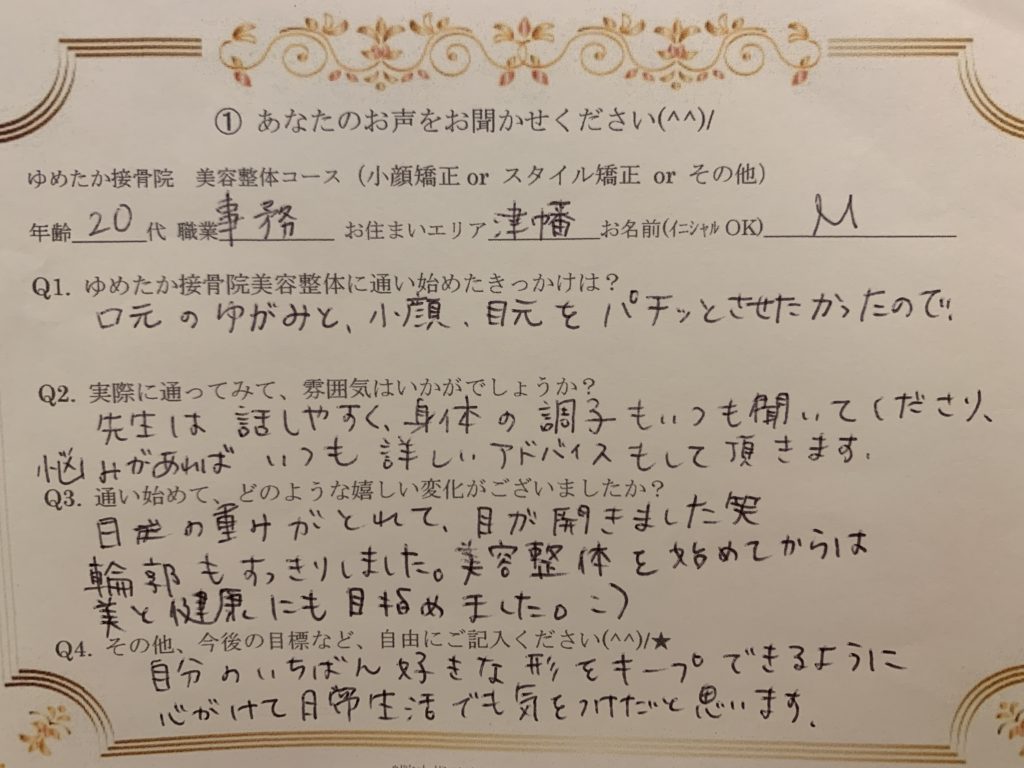 ① あなたのお声をお聞かせください(^^)/
ゆめたか接骨院 美容整体コース（小顔矯正 or スタイル矯正 or その他）
年齢 20 代 職業 事務 お住まいエリア 津幡 お名前(ｲﾆｼｬﾙ OK) M
Q1. ゆめたか接骨院美容整体に通い始めたきっかけは？
口元のゆがみと、小顔、目元をパチッとさせたかったので。
Q2. 実際に通ってみて、雰囲気はいかがでしょうか？
先生は話しやすく、身体の調子もいつも聞いてくださり、
悩みがあればいつも詳しいアドバイスもして頂きます。
Q3. 通い始めて、どのような嬉しい変化がございましたか？
の重みがとれて、目が開きました笑
輪郭もすっきりしました。美容整体を始めてからは
美と健康にも目指めました。:)
Q4. その他、今後の目標など、自由にご記入ください(^^)/★
自分のいちばん好きな形をキープできるように
心がけて日常生活でも気をつけだと思います。